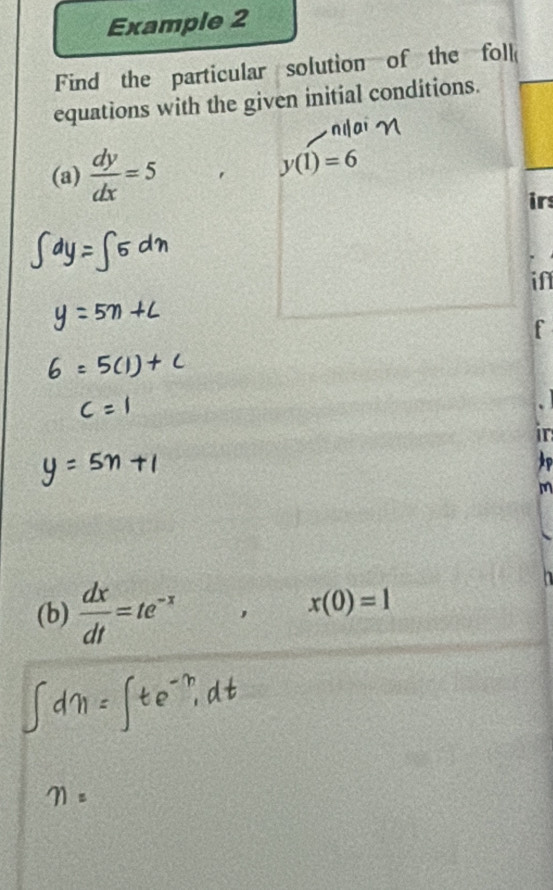 Example 2
Find the particular solution of the foll
equations with the given initial conditions.
nilai x
(a) dy/dx = 5 , y(1) = 6
∫dy = ∫5 dx
y = 5x + c
6 = 5(1) + c
c = 1
y = 5x + 1
(b) dx/dt = te^{-x} , x(0) = 1
∫dx = ∫te^{-x} . dt
x =
irs
iff
f